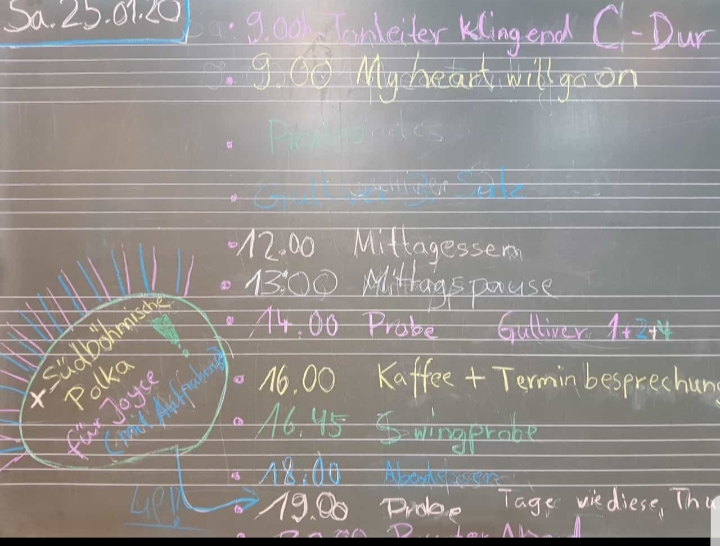 Sa. 25.01.20
9.00h Tonleiter klingend C-Dur
9.00 My heart will go on
Gulliver Satz
12.00 Mittagessen
13:00 Mittagspause
14.00 Probe Gulliver 1+2+4
16.00 Kaffee + Terminbesprechung
16.45 Swingprobe
18:00 Abendessen
19.00 Probe Tage wie diese, Thu
x Südböhmische
Polka
für Joyce
(mit Aufnahme)